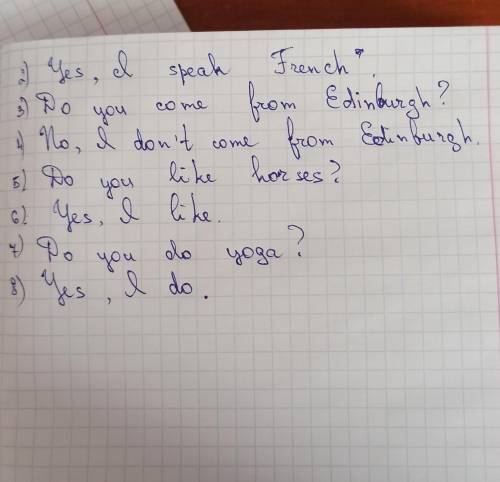 2) Yes, I speak French.
3) Do you come from Edinburgh?
4) No, I don't come from Edinburgh.
5) Do you like horses?
6) Yes, I like.
7) Do you do yoga?
8) Yes, I do.